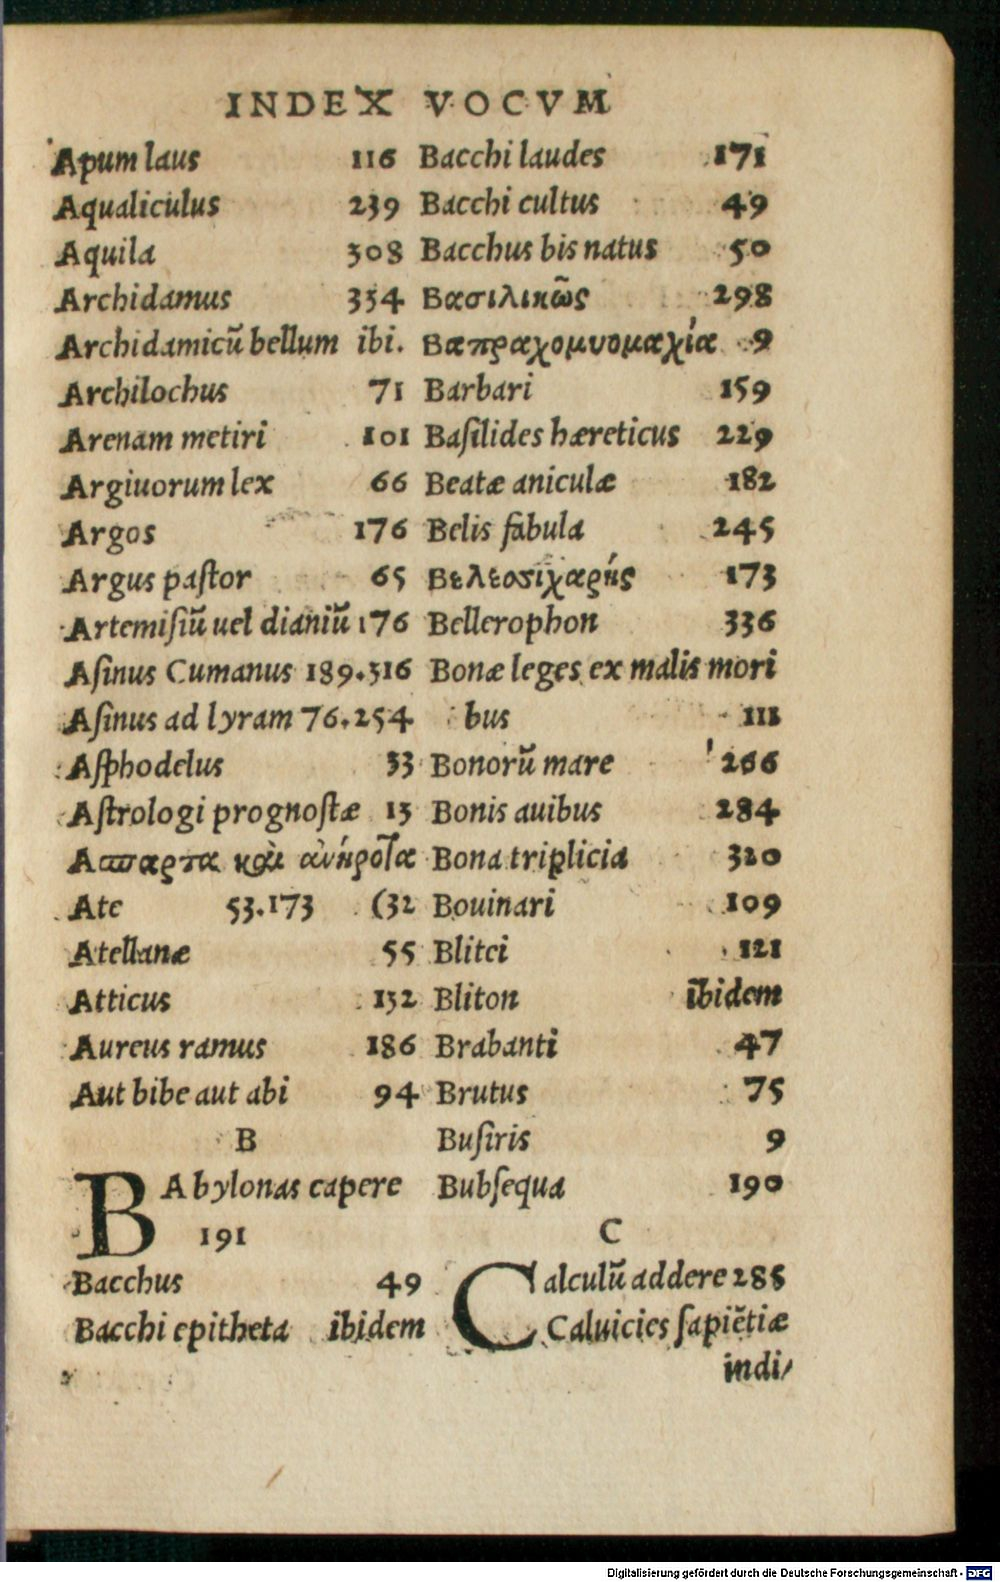 INDEX VOCVM
Apum laus 116
Aqualiculus 239
Aquila 308
Archidamus 334
Archidamicū bellum ibi.
Archilochus 71
Arenam metiri 101
Argiuorum lex 66
Argos 176
Argus paſtor 65
Artemiſiū uel dianiū 176
Aſinus Cumanus 189.316
Aſinus ad lyram 76.254
Aſphodelus 33
Aſtrologi prognoſtæ 13
Ασπαρτα καὶ ἀνήροτα
Ate 53.173 (32
Atellanæ 55
Atticus 132
Aureus ramus 186
Aut bibe aut abi 94
B
BAbylonas capere
191
Bacchus 49
Bacchi epitheta ibidem
Bacchi laudes 171
Bacchi cultus 49
Bacchus bis natus 50
Βασιλικῶς 298
Βαπραχομυομαχία 9
Barbari 159
Baſilides hæreticus 229
Beatæ aniculæ 182
Belis fabula 245
Βελεοσιχαρής 173
Bellerophon 336
Bonæ leges ex malis mori
bus 111
Bonorū mare 266
Bonis auibus 284
Bona triplicia 320
Bouinari 109
Blitei 121
Bliton ibidem
Brabanti 47
Brutus 75
Buſiris 9
Bubſequa 190
C
Calculū addere 285
Caluicies ſapiētiæ
indi/
Digitalisierung gefördert durch die Deutsche Forschungsgemeinschaft - DFG